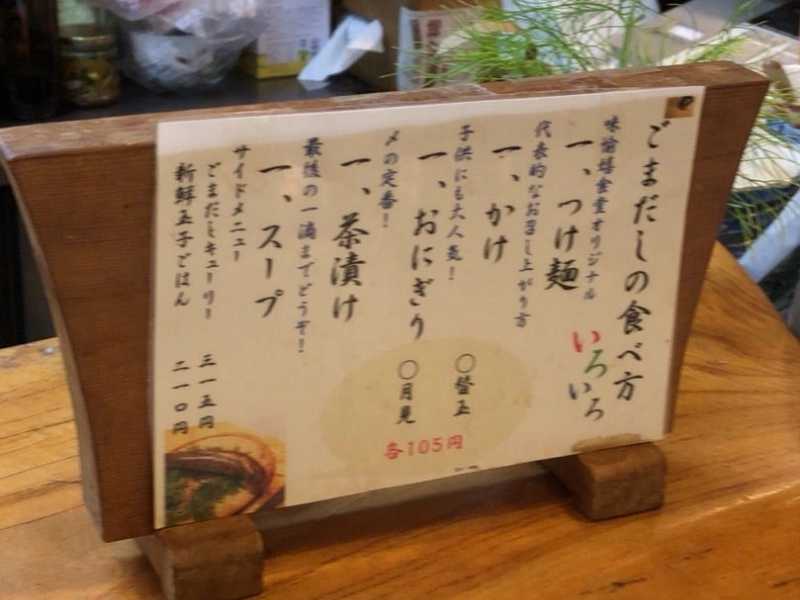 ごまだしの食べ方
いろいろ
味愉嬉食堂オリジナル
一、つけ麺
代表的なお召し上がり方
一、かけ
子供にも大人気！
一、おにぎり
〆の定番！
一、茶漬け
最後の一滴までどうぞ！
一、スープ
〇替玉
〇月見
各105円
サイドメニュー
ごまだしキューリー 三一五円
新鮮玉子ごはん 二一〇円